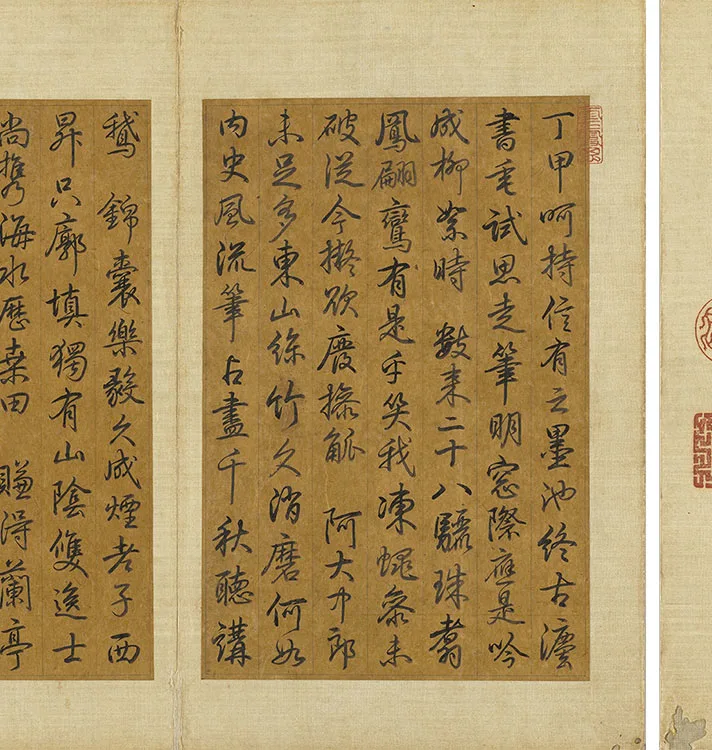 丁甲呵持信有之墨池終古灋
書垂試思走筆明窓際應是吟
成柳絮時　數来二十八驪珠翥
鳳翩鸞有是乎笑我凍蠅參未
破從今擬欲廢操觚　阿大中郎
未足多東山絲竹久消磨何如
內史風流筆占盡千秋聽講
鵝　錦囊樂毅久成煙老子西
昇只廓填獨有山陰雙逸士
尚携海水歷桑田　賺得蘭亭